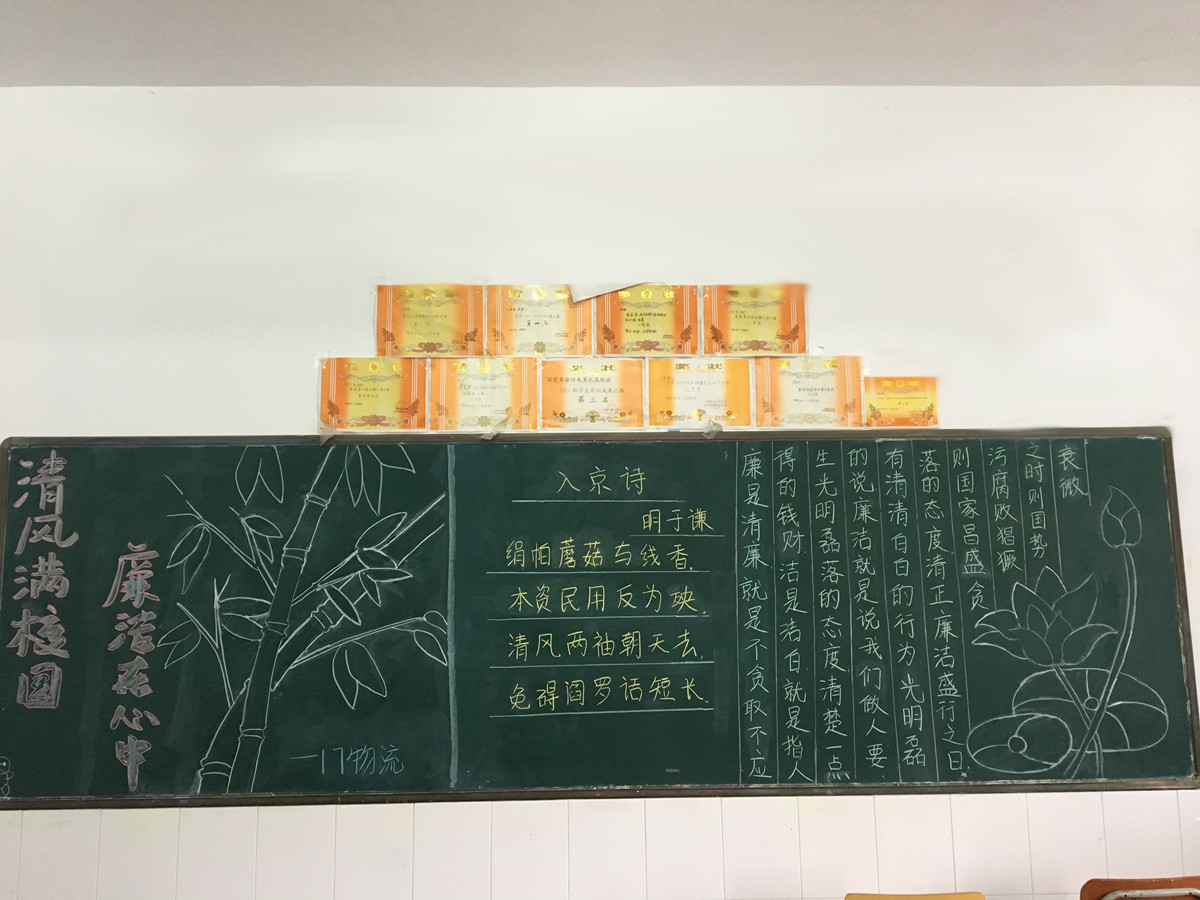 奖状
第一名
奖状
第三名
清风满校园
廉洁在心中
一17物流
入京诗
明于谦
绢帕蘑菇与线香,
本资民用反为殃.
清风两袖朝天去,
免碍阎罗话短长.
廉是清廉,就是不贪取不应
得的钱财,洁是洁白,就是指人
生光明磊落的态度清楚一点
的说廉洁就是说我们做人要
有清清白白的行为光明磊
落的态度清正廉洁盛行之日
则国家昌盛贪
污腐败猖獗
之时则国势
衰微